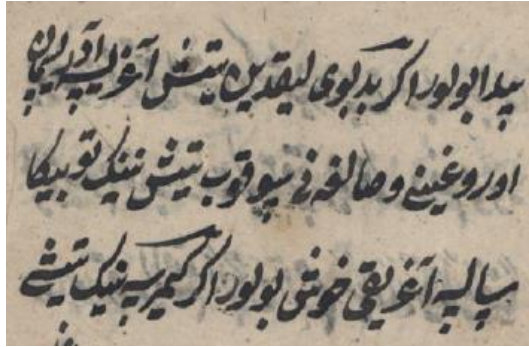 پیدا بولور اکر بدبوی لیقدین تیش آغریسه آدم
اوروغینی و صالغه نی سوقوب تیش نینک توبیکا
سالسه آغریقی خوش بولور اکر کیمرسه نینک تیشی